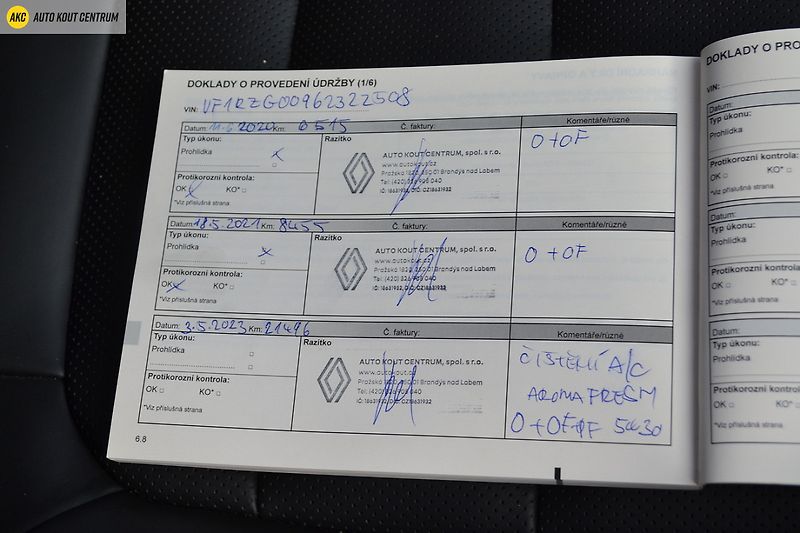 AKC AUTO KOUT CENTRUM
DOKLADY O PROVEDENÍ ÚDRŽBY (1/6)
VIN: VF1RZG00962322508
Datum: 11.6.2020 Km: 0515 Č. faktury: Komentáře/různé
Typ úkonu: Razítko
Prohlídka x
Protikorozní kontrola:
OK x KO*
*Viz příslušná strana
AUTO KOUT CENTRUM, spol. s r.o.
www.autokout.cz
Pražská 1828, 250 01 Brandýs nad Labem
Tel: (420) 326 905 040
IČ: 18631932, DIČ: CZ18631932
O+OF
Datum: 18.5.2021 Km: 8455 Č. faktury: Komentáře/různé
Typ úkonu: Razítko
Prohlídka x
Protikorozní kontrola:
OK x KO*
*Viz příslušná strana
AUTO KOUT CENTRUM, spol. s r.o.
www.autokout.cz
Pražská 1828, 250 01 Brandýs nad Labem
Tel: (420) 326 905 040
IČ: 18631932, DIČ: CZ18631932
O+OF
Datum: 3.5.2023 Km: 21496 Č. faktury: Komentáře/různé
Typ úkonu: Razítko
Prohlídka
Protikorozní kontrola:
OK KO*
*Viz příslušná strana
AUTO KOUT CENTRUM, spol. s r.o.
www.autokout.cz
Pražská 1828, 250 01 Brandýs nad Labem
IČ: 18631932, DIČ: CZ18631932
ČIŠTĚNÍ A/C
AROMA FRESH
O+OF+PF 5W30
6.8
DOKLADY O PRO
VIN:
Datum:
Typ úkonu:
Prohlídka
Protikorozní kontrola:
OK KO*
*Viz příslušná strana
Datum:
Typ úkonu:
Prohlídka
Protikorozní kontrola:
OK KO*
*Viz příslušná strana
Datum:
Typ úkonu:
Prohlídka
Protikorozní kontrola:
OK KO*
*Viz příslušná strana